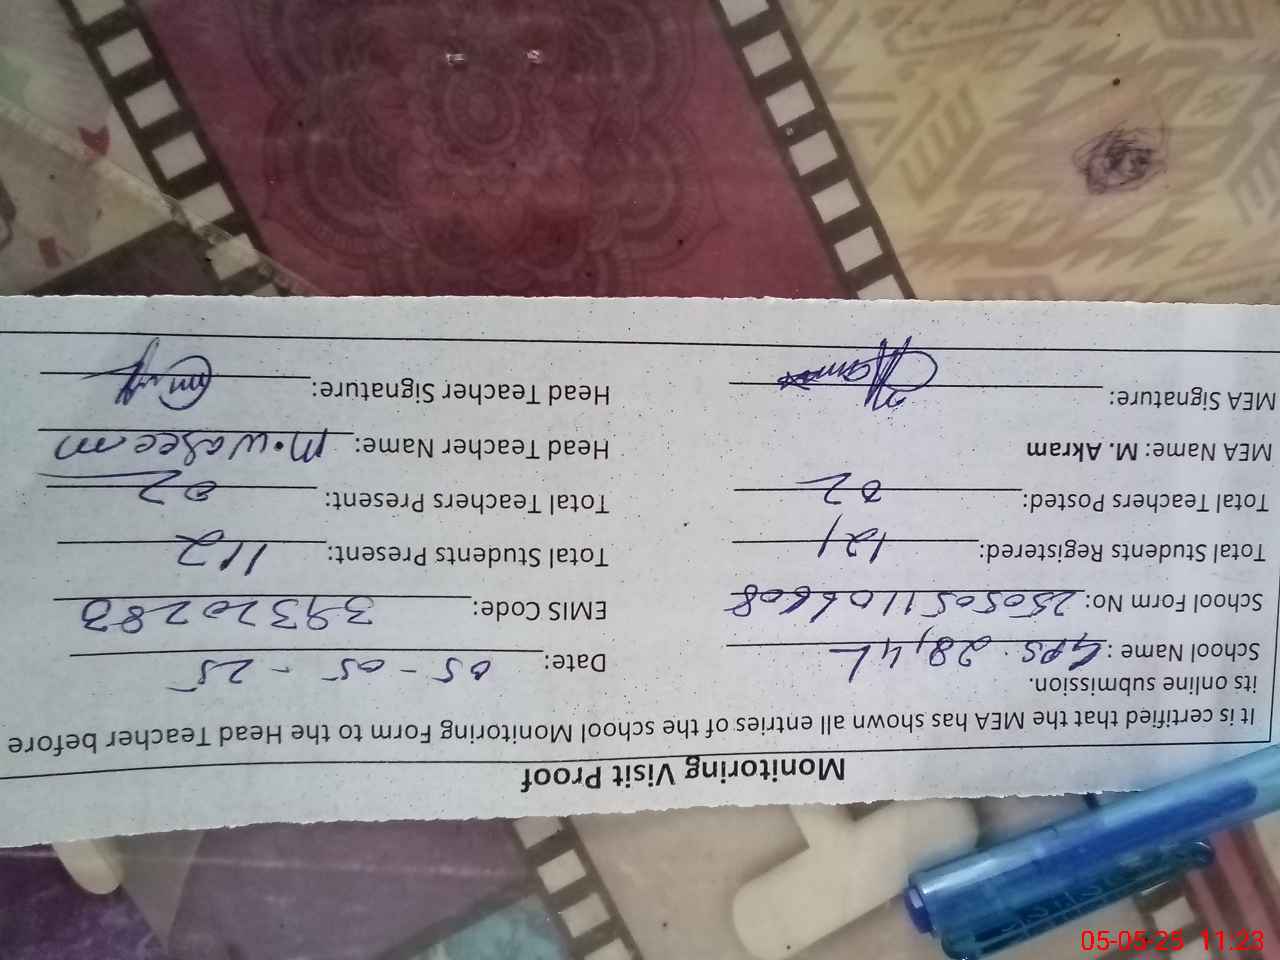 Monitoring Visit Proof
It is certified that the MEA has shown all entries of the school Monitoring Form to the Head Teacher before
its online submission.
School Name : GPS. 28,4L Date: 05-05-25
School Form No: 2505051106608 EMIS Code: 39320283
Total Students Registered: 121 Total Students Present: 112
Total Teachers Posted: 02 Total Teachers Present: 02
MEA Name: M. Akram Head Teacher Name: M.waseem
MEA Signature: Head Teacher Signature:
05-05-25 11:23